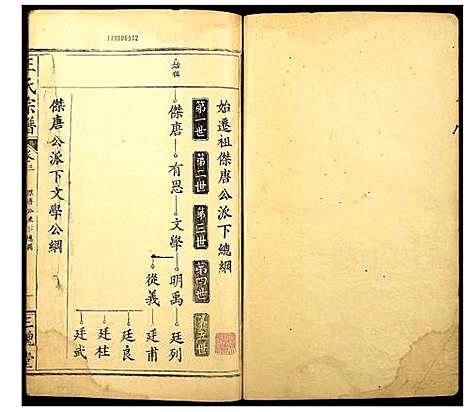 始遷祖傑唐公派下總綱
第一世
第二世
第三世
第四世
第五世
始祖
傑唐
有恩
文學
明禹
廷列
從義
廷甫
廷良
廷杜
廷武
傑唐公派下文學公綱
王氏宗譜
卷三
傑唐公派下總綱
三槐堂